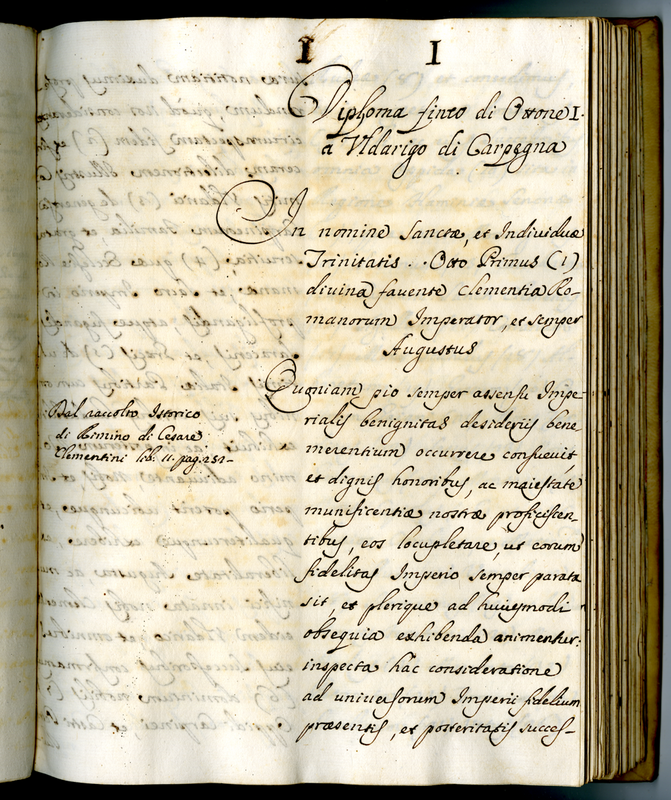 I I
Diploma finto di Ottone I.
a Uldarigo di Carpegna
In nomine Sanctæ, et Individuæ
Trinitatis. Otto Primus (1)
divina favente clementia Ro-
manorum Imperator, et semper
Augustus
Quoniam pio semper assensu Impe-
rialis benignitas desideriis bene
merentium occurrere consuevit
et dignis honoribus, ac maiestate
munificentiæ nostræ proficiscen-
tibus, eos locupletare, ut eorum
fidelitas Imperio semper parata
sit, et plerique ad huiusmodi
obsequia exhibenda animentur:
inspecta hac consideratione
ad universorum Imperii fidelium
præsentis, et posteritatis succes-
Dal raccolto Istorico
di Rimino di Cesare
Clementini lib. 11. pag. 251-